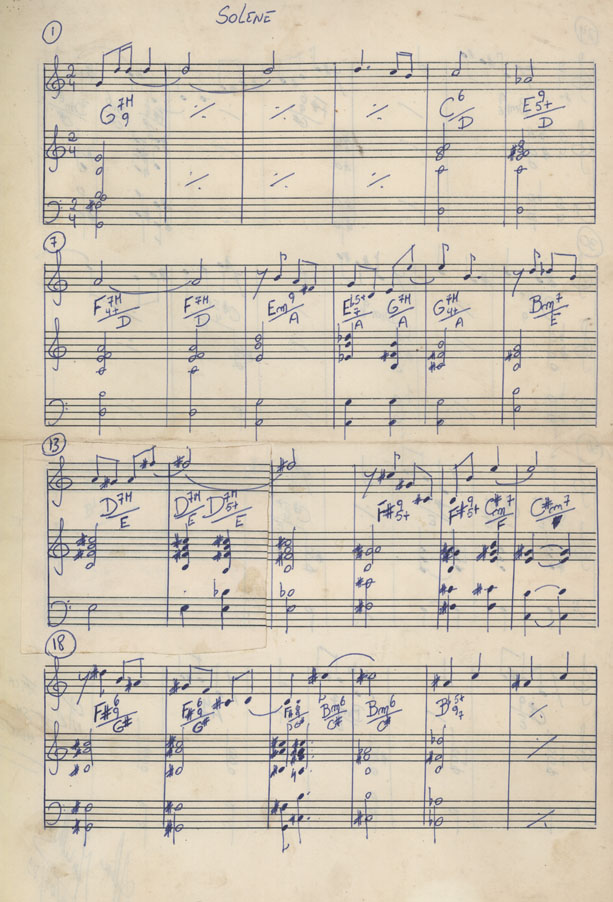 SOLENE
1
2 4
G 7H 9 ∕. ∕. ∕. C6/D E 9 5+/D
2 4
∕. ∕. ∕.
2 4
7
F 7H 4+/D F 7H/D Em9/A G 7H/A G 7H 4+/A Bm7/E
13
D 7H/E D 7H/E D 7H 5+/E F# 9 5+ F# 9 5+ C#m7/F C#m7
18
F# 6 9/G# F# 6 9/G# Bm6/C# Bm6/C#